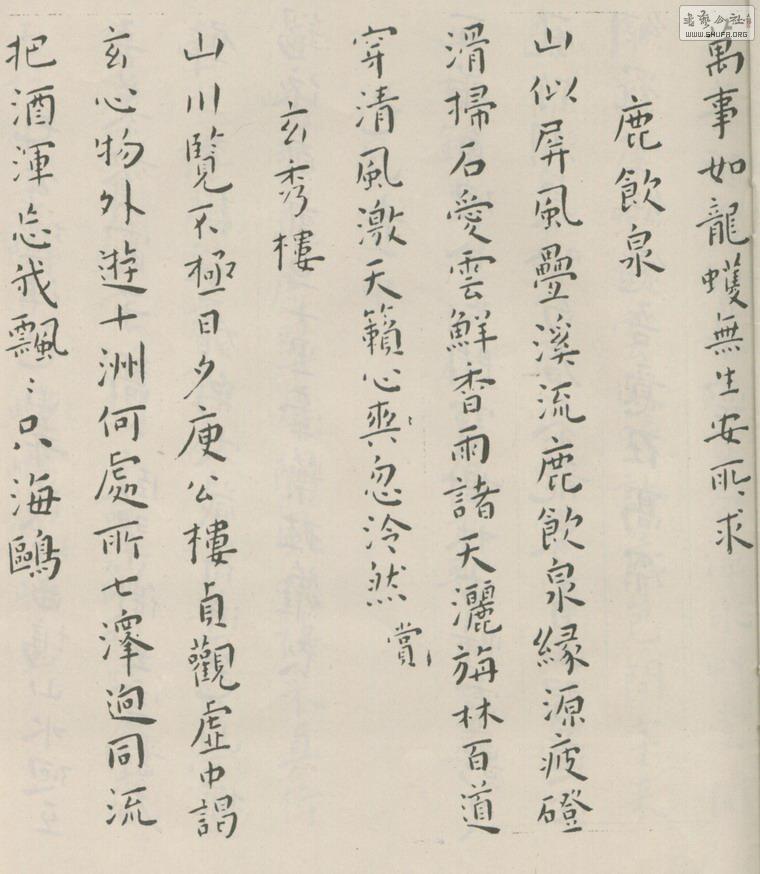 萬事如龍蠖無生安所求
鹿飲泉
山似屏風疊溪流鹿飲泉緣源疲磴
滑掃石愛雲鮮香雨諸天灑旃林百道
穿清風激天籟心爽忽泠然 賞
玄秀樓
山川覽不極日夕庾公樓貞觀虛中謁
玄心物外遊十洲何處所七澤迥同流
把酒渾忘我飄〻只海鷗
書法公社
www.SHUFA.ORG